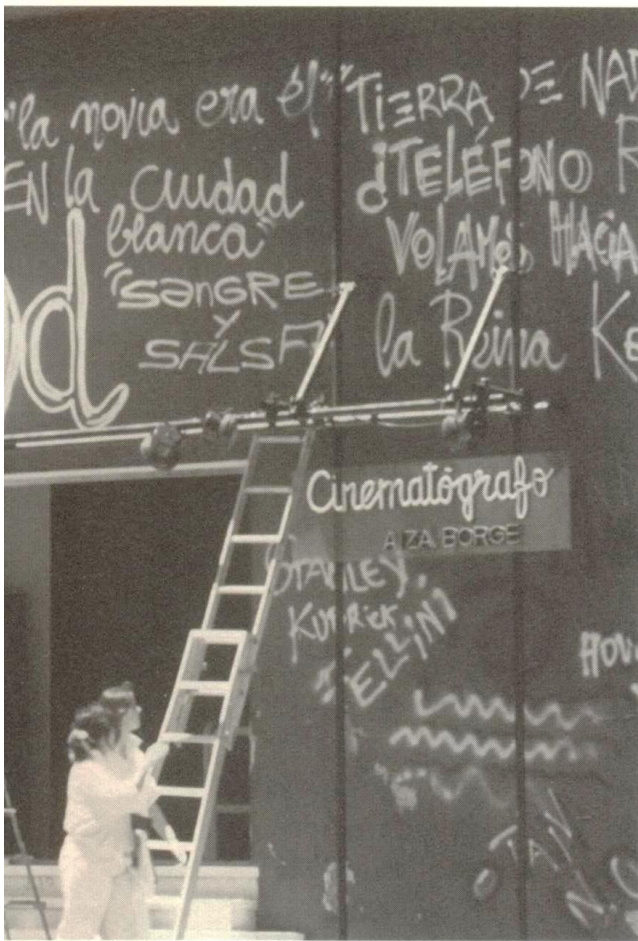 "la novia era él"
EN la ciudad
blanca"
"SANGRE
Y
SALSA
TIERRA DE
¿TELÉFONO R
VOLAMOS HACIA
la Reina Ke
Cinematógrafo
A ZA BORGE
STANLEY,
KUBRICK
FELLINI
OTAN
NO